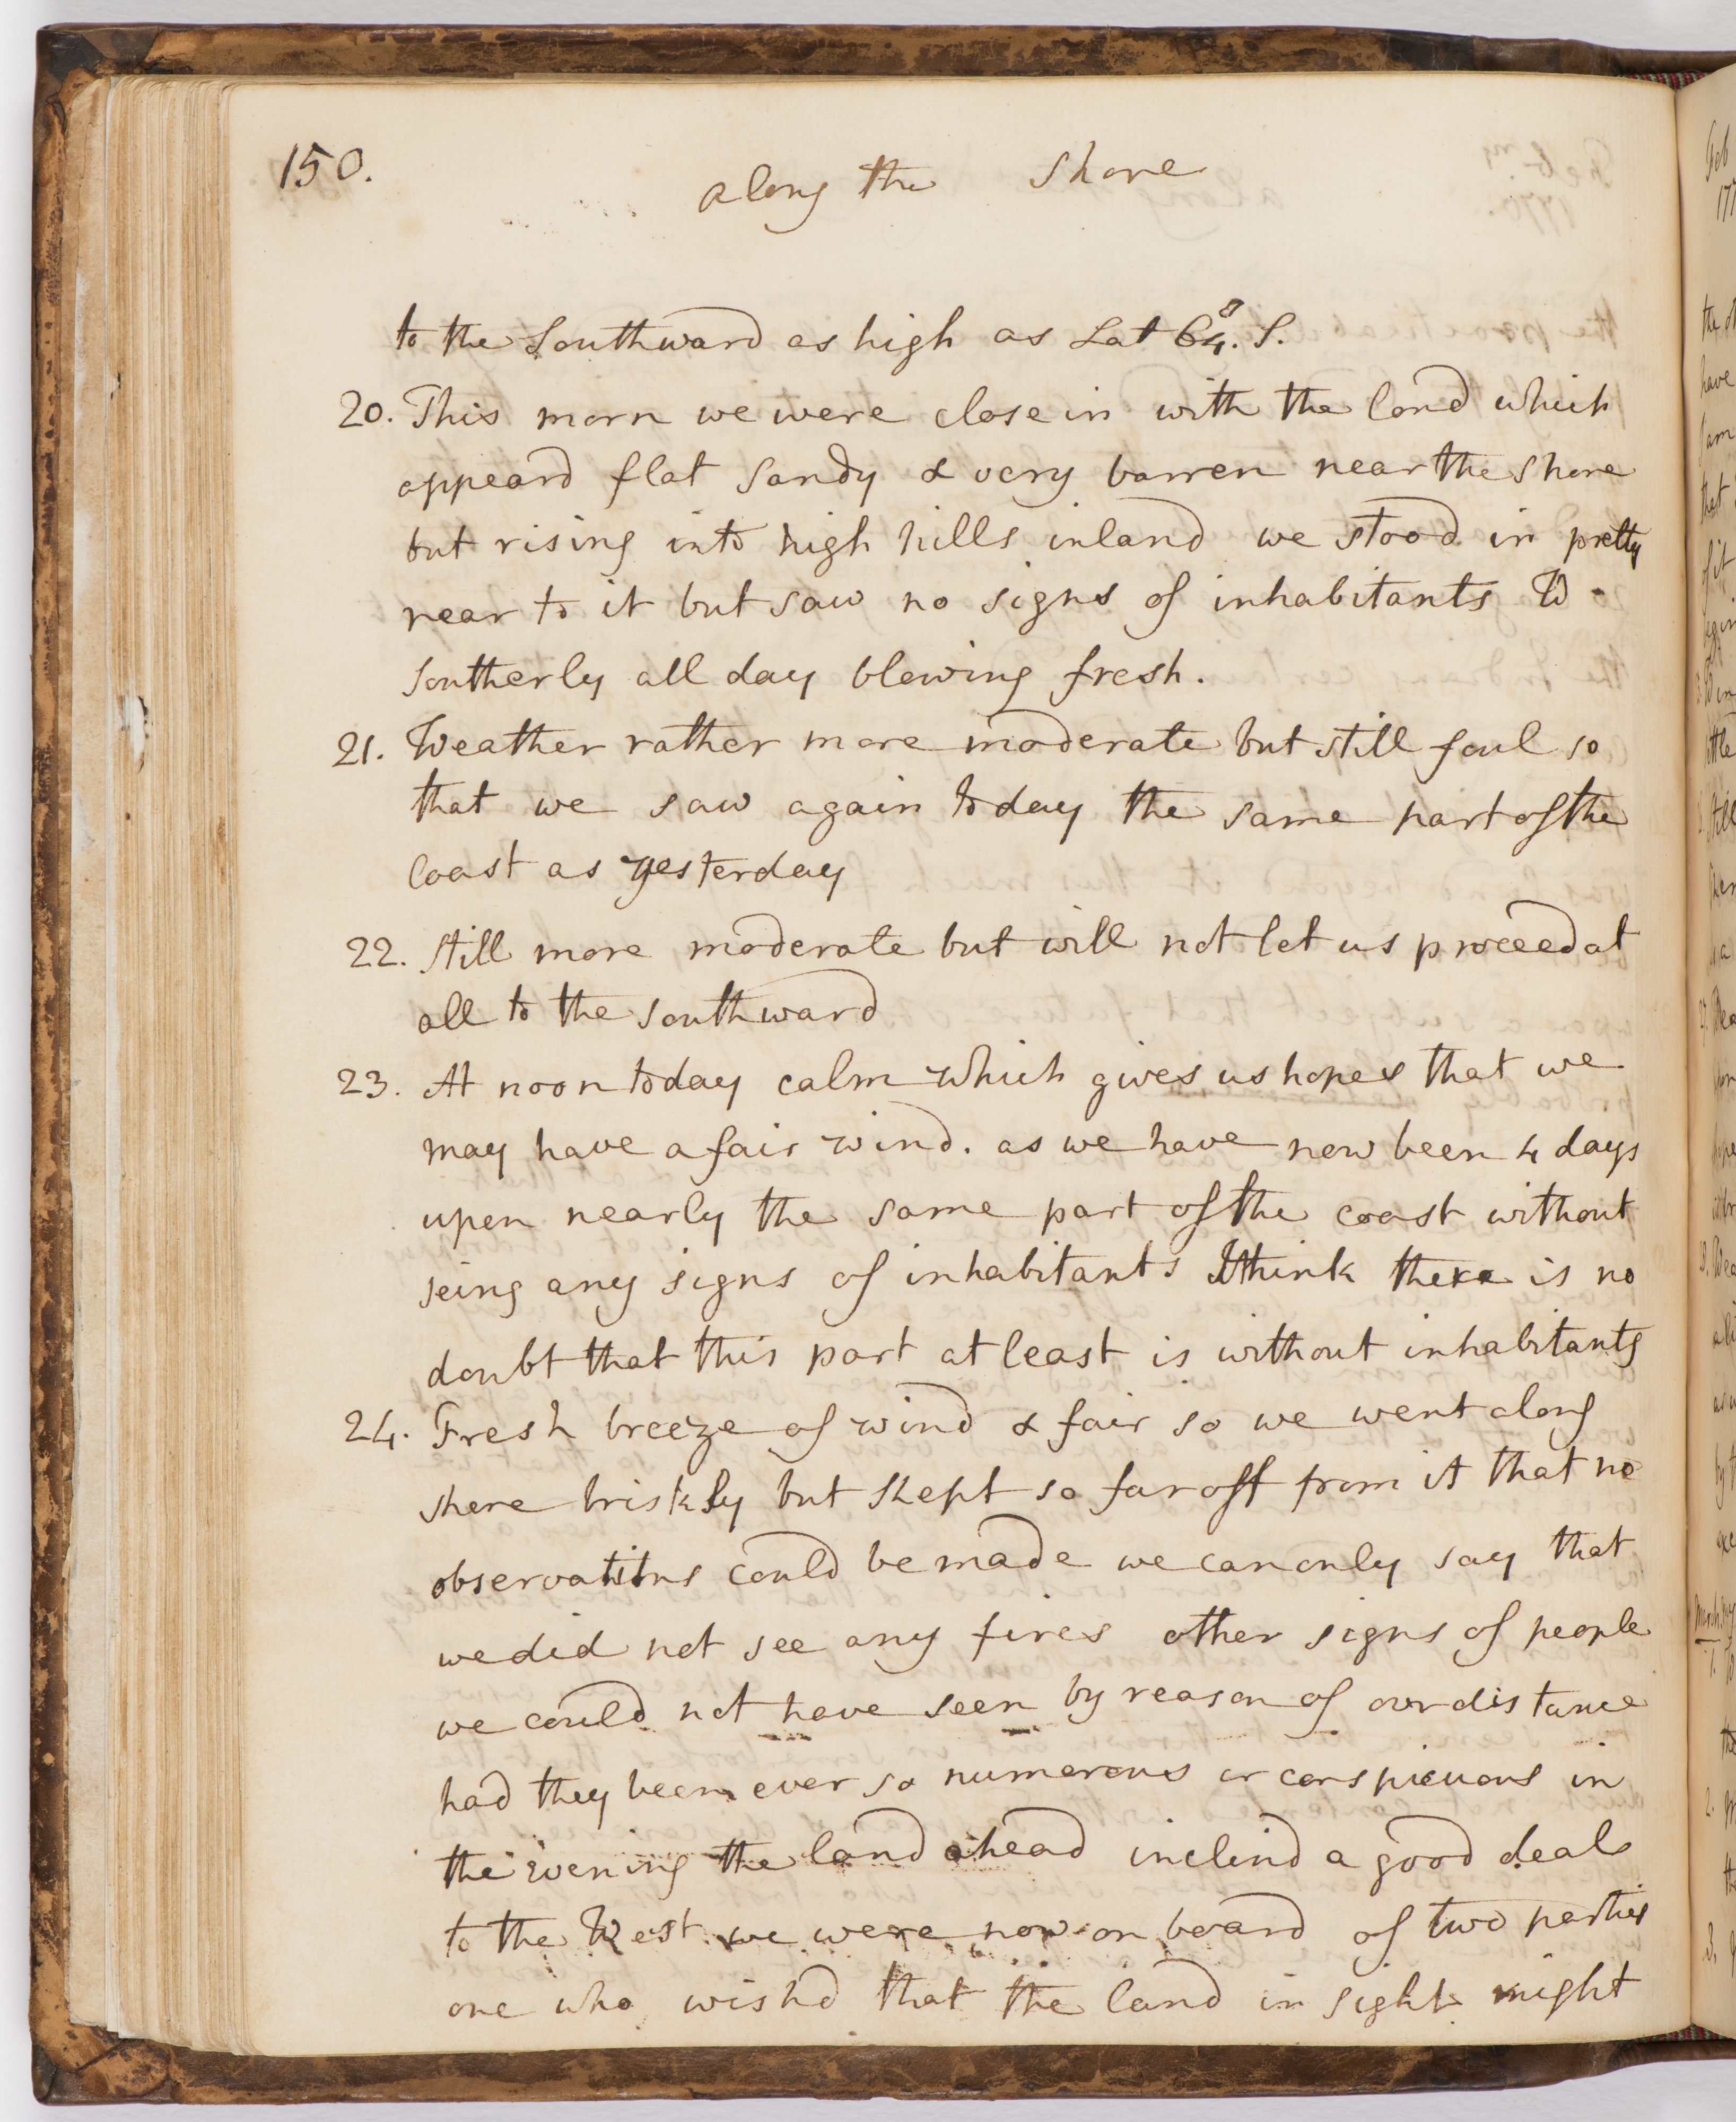 150.
along the shore
to the Southward as high as Lat 64. S.
20. This morn we were close in with the land which
appeard flat sandy & very barren near the shore
but rising into high hills inland we stood in pretty
near to it but saw no signs of inhabitants W
southerly all day blowing fresh.
21. Weather rather more moderate but still foul so
that we saw again today the same part of the
coast as yesterday
22. Still more moderate but will not let us proceed at
all to the southward
23. At noon today calm which gives us hopes that we
may have a fair wind. as we have now been 4 days
upon nearly the same part of the coast without
seing any signs of inhabitants I think there is no
doubt that this part at least is without inhabitants
24. Fresh breeze of wind & fair so we went along
shore briskly but kept so far off from it that no
observations could be made we can only say that
we did not see any fires other signs of people
we could not have seen by reason of our distance
had they been ever so numerous or conspicuous in
the Evening the land ahead inclind a good deal
to the West we were now on board of two parties
one who wishd that the land in sight might